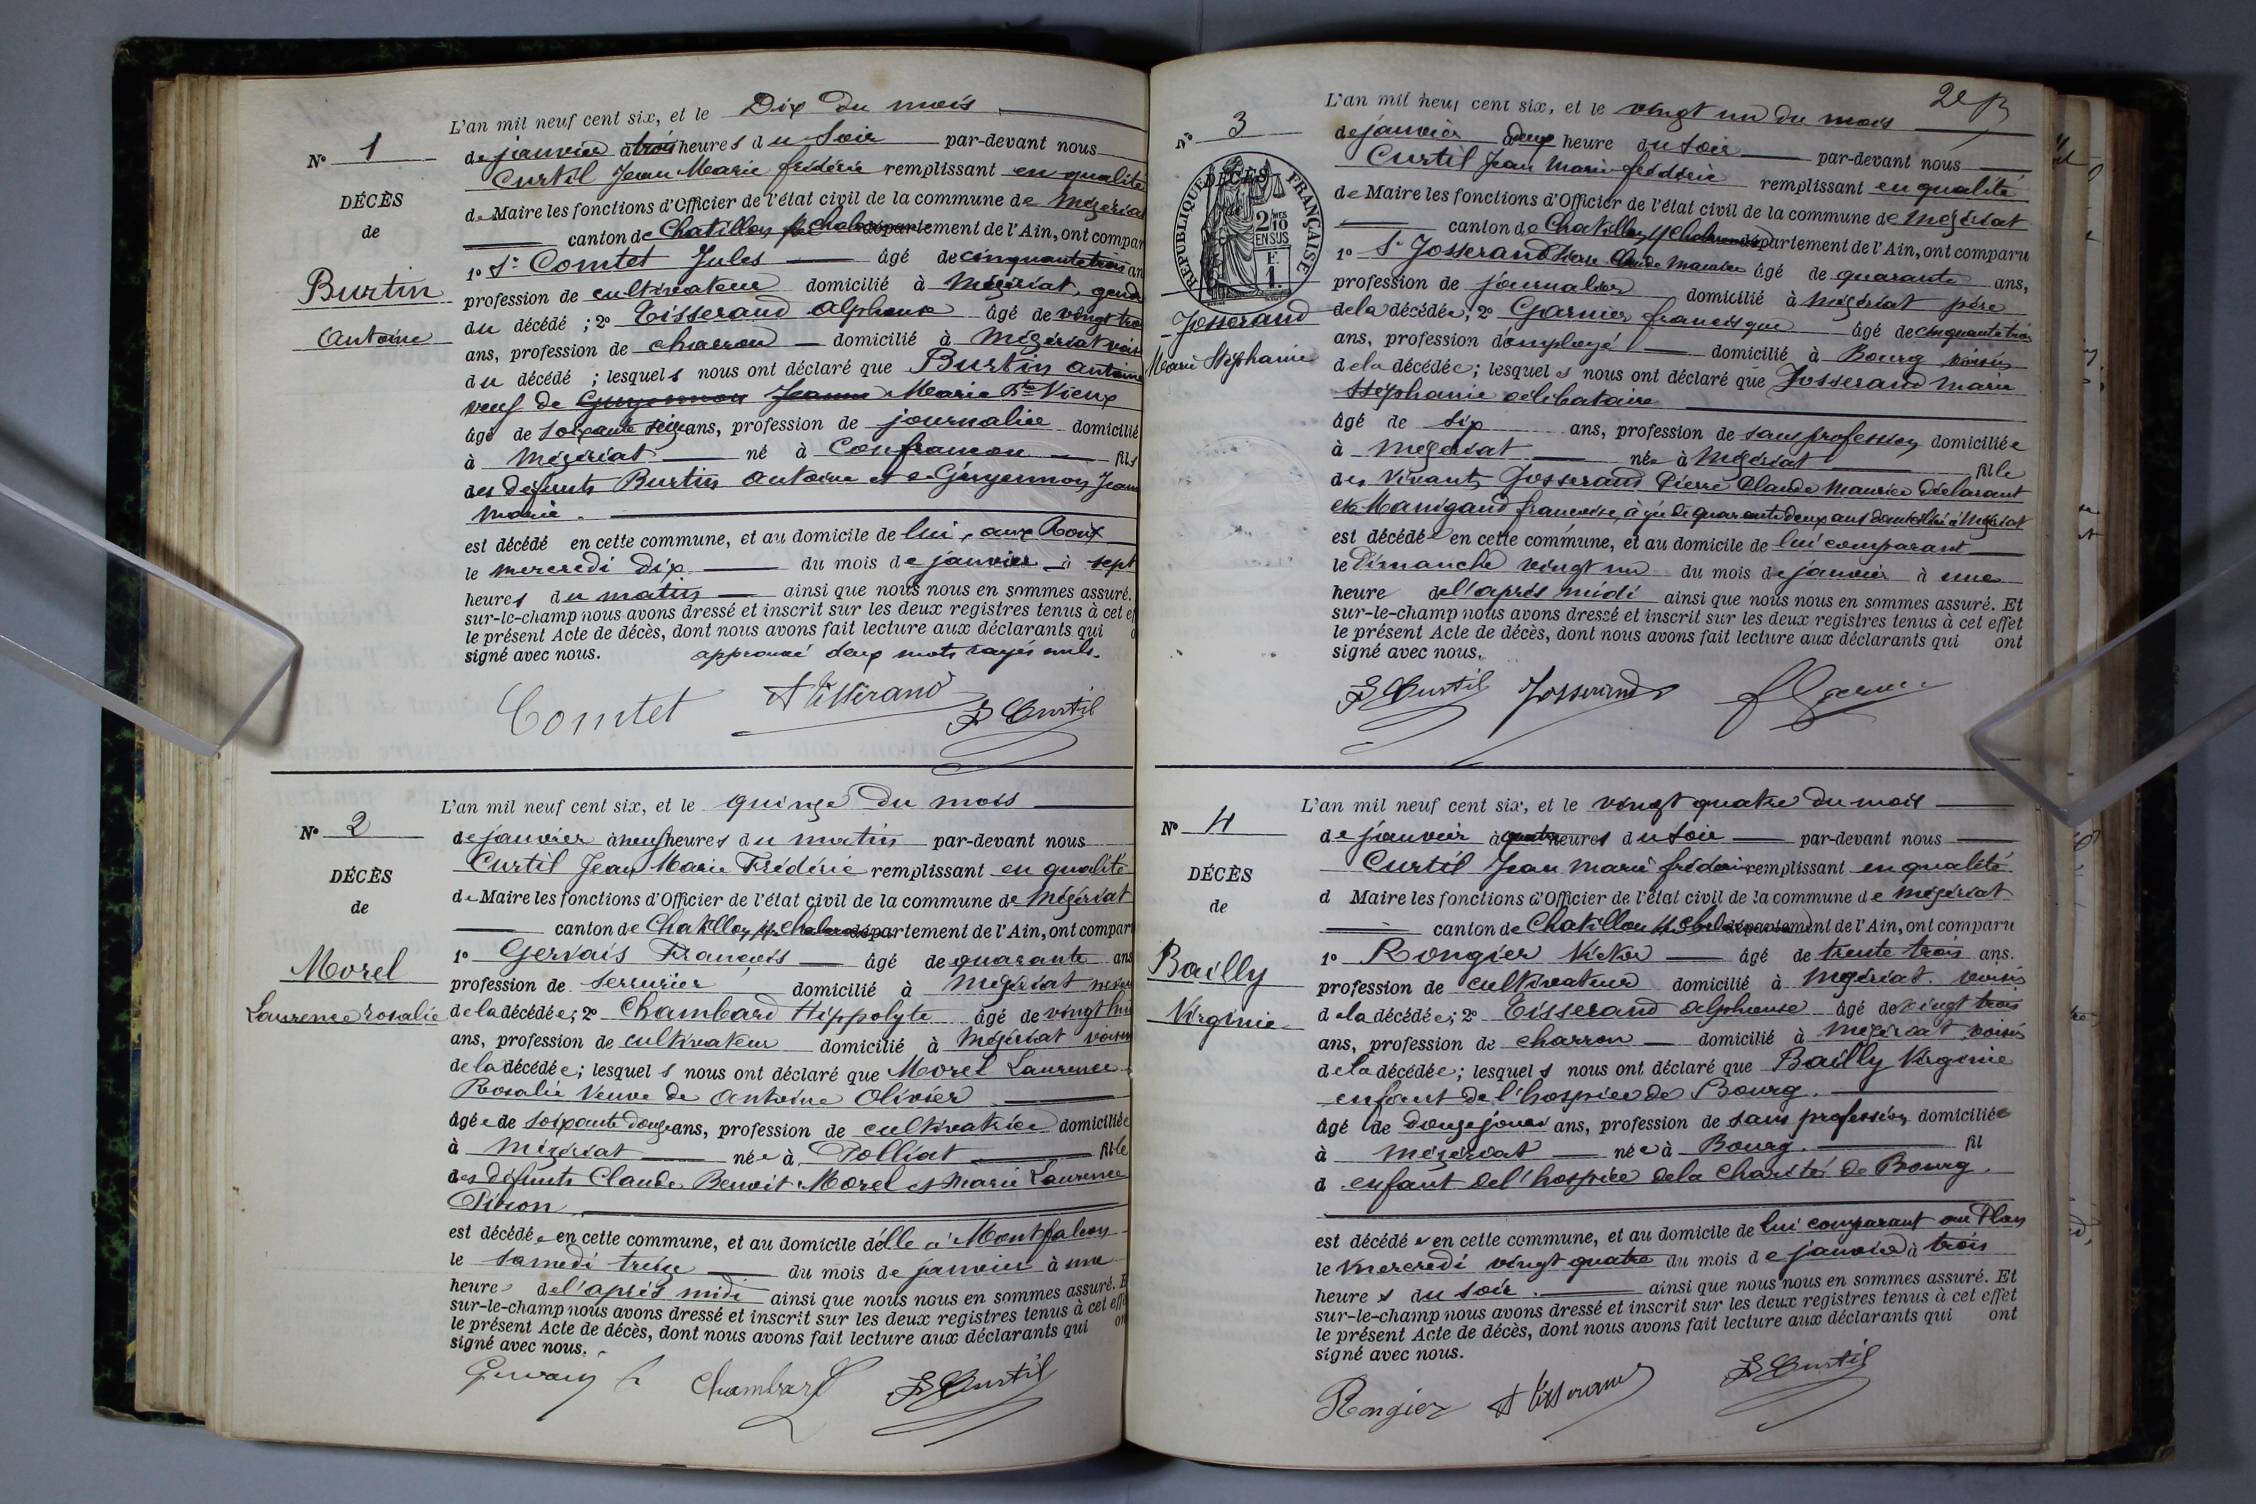 N° 1
DÉCÈS
de
Burtin
Antoine
L'an mil neuf cent six, et le Dix du mois
de janvier à trois heures du soir par-devant nous
Curtil Jean Marie frédéric remplissant en qualité
de Maire les fonctions d'Officier de l'état civil de la commune de Mézériat
canton de Chatillon s/ Chal département de l'Ain, ont compar
1° Sr Comtet Jules âgé de cinquante trois an
profession de cultivateur domicilié à Mézériat, gendre
du décédé ; 2° Tisserand Alphonse âgé de vingt trois
ans, profession de charron domicilié à Mézériat voisin
du décédé ; lesquels nous ont déclaré que Burtin Antoine
veuf de Guyennon Jeanne Marie Bte Vieux
âgé de soixante seize ans, profession de journalier domicilié
à Mézériat né à Confrançon fils
des défunts Burtin Antoine et de Guyennon Jeanne
Marie.
est décédé en cette commune, et au domicile de lui, aux Roux
le mercredi dix du mois de janvier à sept
heures du matin ainsi que nous nous en sommes assuré.
sur-le-champ nous avons dressé et inscrit sur les deux registres tenus à cet ef
le présent Acte de décès, dont nous avons fait lecture aux déclarants qui
signé avec nous. approuvé deux mots rayés nuls.
Comtet A Tisserand F Curtil
N° 2
DÉCÈS
de
Morel
Laurence rosalie
L'an mil neuf cent six, et le quinze du mois
de janvier à neuf heures du matin par-devant nous
Curtil Jean Marie Frédéric remplissant en qualité
de Maire les fonctions d'Officier de l'état civil de la commune de Mézériat
canton de Chatillon s/ Chal département de l'Ain, ont compar
1° Gervais François âgé de quarante ans
profession de serrurier domicilié à Mézériat neveu
de la décédée; 2° Chambard Hippolyte âgé de vingt huit
ans, profession de cultivateur domicilié à Mézériat voisin
de la décédée; lesquels nous ont déclaré que Morel Laurence
Rosalie Veuve de Antoine Olivier
âgée de soixante douze ans, profession de cultivatrice domiciliée
à Mézériat née à Polliat fille
des défunts Claude Benoit Morel et Marie Laurence
Pithon
est décédée en cette commune, et au domicile d'elle à Montfalcon
le samedi treize du mois de janvier à une
heure de l'après midi ainsi que nous nous en sommes assuré. E
sur-le-champ nous avons dressé et inscrit sur les deux registres tenus à cet effe
le présent Acte de décès, dont nous avons fait lecture aux déclarants qui on
signé avec nous.
Gervais f Chambard F Curtil
2e
N° 3
RÉPUBLIQUE FRANÇAISE
DÉCÈS
2/10 MES
EN SUS
F.
1.
Josserand
Marie Stéphanie
L'an mil neuf cent six, et le vingt un du mois
de janvier à deux heure du soir par-devant nous
Curtil Jean Marie frédéric remplissant en qualité
de Maire les fonctions d'Officier de l'état civil de la commune de Mézériat
canton de Chatillon s/ Chal département de l'Ain, ont comparu
1° Sr Josserand Pierre Claude Maurice âgé de quarante ans,
profession de journalier domicilié à Mézériat père
de la décédée; 2° Garnier francisque âgé de cinquante trois
ans, profession d'employé domicilié à Bourg voisin
de la décédée; lesquels nous ont déclaré que Josserand Marie
Stéphanie célibataire
âgé de six ans, profession de sans profession domiciliée
à Mézériat née à Mézériat fille
des vivants Josserand Pierre Claude Maurice déclarant
et Manigand francoise, âgée de quarante deux ans domiciliée à Mézériat
est décédée en cette commune, et au domicile de lui comparant
le Dimanche vingt un du mois de janvier à une
heure de l'après midi ainsi que nous nous en sommes assuré. Et
sur-le-champ nous avons dressé et inscrit sur les deux registres tenus à cet effet
le présent Acte de décès, dont nous avons fait lecture aux déclarants qui ont
signé avec nous.
F Curtil Josserand
N° 4
DÉCÈS
de
Bailly
Virginie
L'an mil neuf cent six, et le vingt quatre du mois
de janvier à quatre heures du soir par-devant nous
Curtil Jean Marie frédéric remplissant en qualité
d Maire les fonctions d'Officier de l'état civil de la commune de Mézériat
canton de Chatillon s/ Chal département de l'Ain, ont comparu
1° Rongier Victor âgé de trente trois ans.
profession de cultivateur domicilié à Mézériat voisin
de la décédée; 2° Tisserand Alphonse âgé de vingt trois
ans, profession de charron domicilié à Mézériat voisin
de la décédée; lesquels nous ont déclaré que Bailly Virginie
enfant de l'hospice de Bourg.
âgé de douze jours ans, profession de sans profession domiciliée
à Mézériat née à Bourg. fil
d enfant de l'hospice de la Charité de Bourg.
est décédée en cette commune, et au domicile de lui comparant au Plan
le Mercredi vingt quatre du mois de janvier à trois
heures du soir. ainsi que nous nous en sommes assuré. Et
sur-le-champ nous avons dressé et inscrit sur les deux registres tenus à cet effet
le présent Acte de décès, dont nous avons fait lecture aux déclarants qui ont
signé avec nous.
Rongier A Tisserand F Curtil